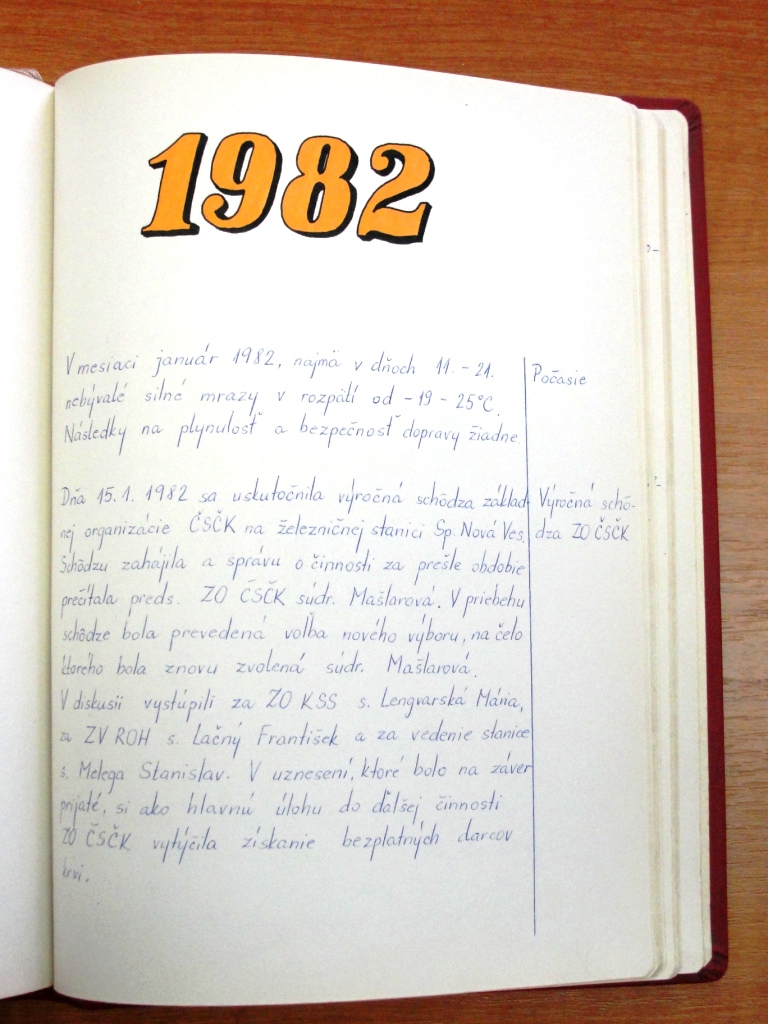 1982
V mesiaci január 1982, najmä v dňoch 11. - 21.
nebývalé silné mrazy v rozpätí od -19 - 25°C.
Následky na plynulosť a bezpečnosť dopravy žiadne.
Počasie
Dňa 15.1. 1982 sa uskutočnila výročná schôdza základ-
nej organizácie ČSČK na železničnej stanici Sp. Nová Ves.
Schôdzu zahájila a správu o činnosti za prešlé obdobie
prečítala preds. ZO ČSČK súdr. Mašlarová. V priebehu
schôdze bola prevedená voľba nového výboru, na čelo
ktorého bola znovu zvolená súdr. Mašlarová.
V diskusii vystúpili za ZO KSS s. Lengvarská Mária,
za ZV ROH s. Lačný František a za vedenie stanice
s. Melega Stanislav. V uznesení, ktoré bolo na záver
prijaté, si ako hlavnú úlohu do ďalšej činnosti
ZO ČSČK vytýčila získanie bezplatných darcov
krvi.
Výročná schô-
dza ZO ČSČK